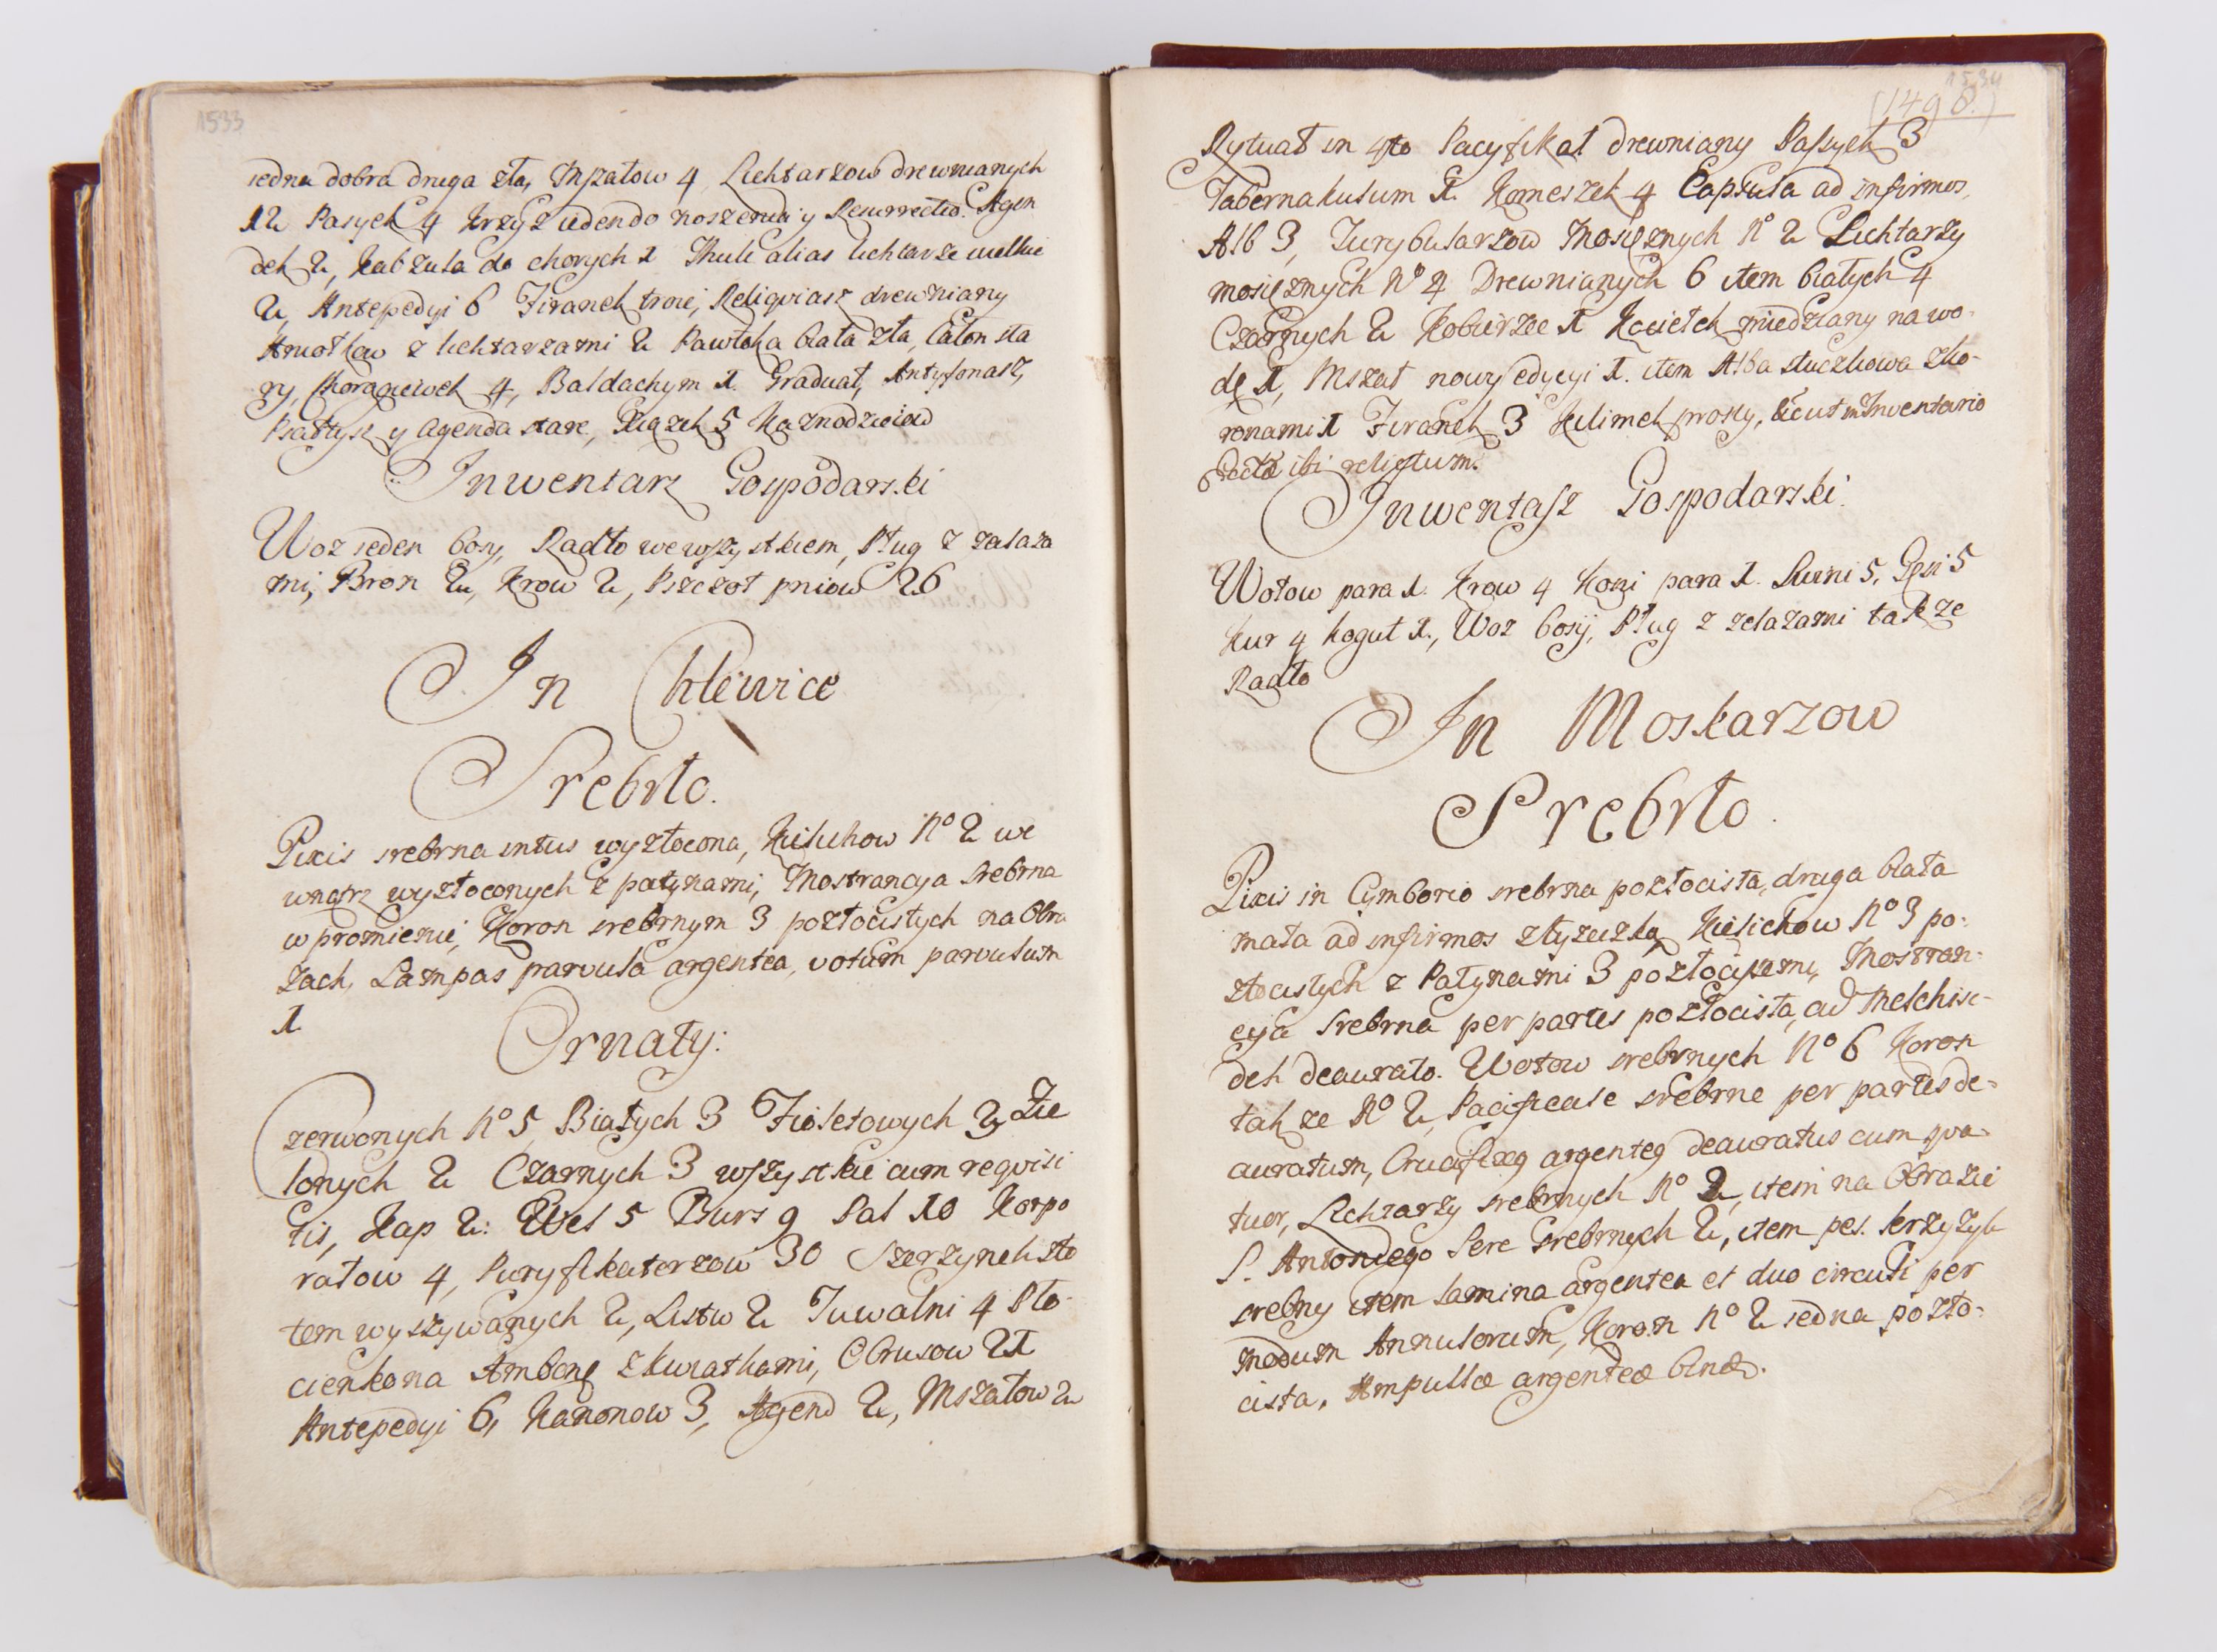 1533
jedna dobra druga zła, Mszałow 4 Lichtarzow drewnianych
12 Pasyek 4 Krzyż jeden do noszenia y Resurrectio. Agen
dek 2, Kabzula do chorych 1 Thuli alias lichtarze wielkie
2, Antepedyi 6 Firanek troie, Reliqviarz drewniany
Aniołkow z lichtarzami 2 Pawłoka biała zła, Calon sta
ry, Chorągiewek 4, Baldachym 1 Graduał, Antyfonarz,
Psałtyrz y Agenda stare, Xiążek 5 Kaznodzieiow
Inwentarz Gospodarski
Woz jeden bosy, Radło we wszystkiem, Pług z żalaza
mi, Bron 2, Krow 2, Pszczoł pniow 26
In Chlewice
Srebrło.
Pixis srebrna intus wyzłocona, Kielichow No 2 we
wnątrz wyzłoconych z patynami, Mostrancya srebrna
w promienie, Koron srebrnym 3 pozłocistych na Obra
zach, Lampas parvula argentea, votum parvulum
1
Ornaty:
Czerwonych No 5 Białych 3 Fioletowych 3 Zie
lonych 2 Czarnych 3 wszystkie cum reqvisi
tis, Kap 2: Wel 5 Burs 9 Pal 10 Korpo
rałow 4, Puryfikaterzow 30 Szerzynek zło
tem wyszywanych 2, Listw 2 Tuwalni 4 Płó
cienko na Ambonę z kwiatkami, Obrusow 21
Antepedyi 6, Kanonow 3, Agend 2, Mszałow 2
1534
(1498.)
Rytuał in 4to Pacyfikał drewniany Passyek 3
Tabernakulum 1. Komeszek 4 Capsula ad infirmos,
Alb 3, Turybularzow Mosiężnych No 2 Lichtarzy
mosiężnych No 4 Drewnianych 6 item białych 4
Czarnych 2 Kobierzec 1 Kociełek miedziany na wo-
dę 1, Mszał nowy edycyi 1. item Alba tluczkowa z ko-
ronami 1 Firanek 3 Kilimek prosty, sicut in Inventario
recto ibi relictum.
Inwentasz Gospodarski.
Wołow para 1. Krow 4 Koni para 1. Swini 5, Gęsi 5
Kur 4 kogut 1., Woz bosy, Pług z zelazami takze
Radło
In Moskarzow
Srebrło.
Pixis in Cymborio srebrna pozłocista, druga biała
mała ad infirmos z łyzeczką Kielichow No 3 po-
złocistych z Patynami 3 pozłocistemi, Mostran-
cyja srebrna per partes pozłocista, cu Melchise-
dek deaurato. Wotow srebrnych No 6 Koron
takze No 2, Pacificale srebrne per partes de-
auratum, Crucifixq argenteq deauratus cum qva-
tuor, Lichtarzy srebrnych No 2, item na Obrazie
S. Antoniego Serc srebrnych 2, item pes. krzyżyk
srebny item lamina argentea et duo circuli per
modum Annulorum, Koron No 2 jedna pozło-
cista, Ampullæ argenteæ binæ.